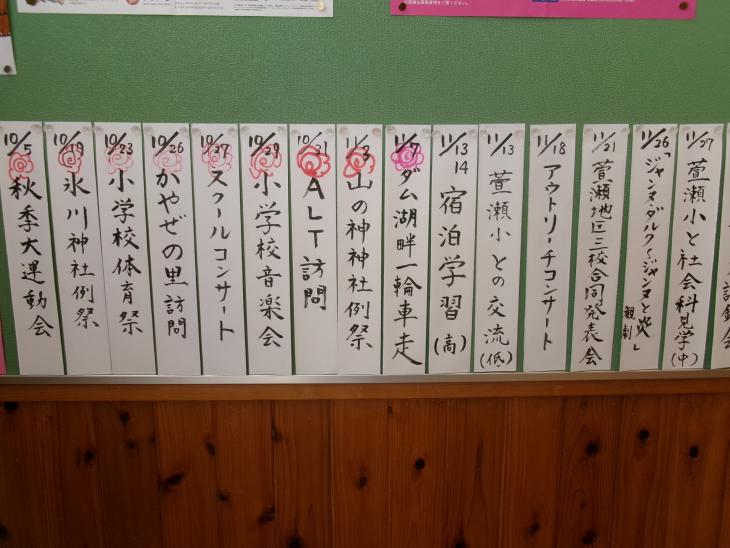 10/5 秋季大運動会
10/19 氷川神社例祭
10/23 小学校体育祭
10/26 かやぜの里訪問
10/27 スクールコンサート
10/29 小学校音楽会
10/31 ALT訪問
11/3 山の神神社例祭
11/7 ダム湖畔一輪車走
11/13 14 宿泊学習(高)
11/13 萱瀬小との交流(低)
11/18 アウトリーチコンサート
11/21 萱瀬地区三校合同発表会
11/26 「ジャンヌ・ダルク〜ジャンヌと炎」観劇
11/27 萱瀬小と社会科見学(中)